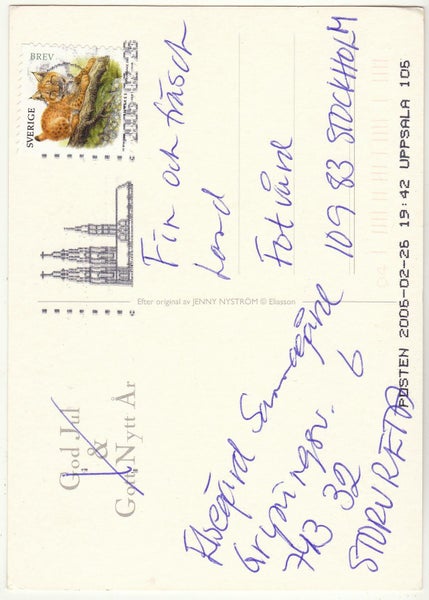 BREV
SVERIGE
2006-02-26
God Jul
&
Gott Nytt År
Efter original av JENNY NYSTRÖM © Eliasson
Fin och fräsch
Land
Fotvård
109 83 STOCKHOLM
743 32
STORVRETA
6
POSTEN 2006-02-26 19:42 UPPSALA 106